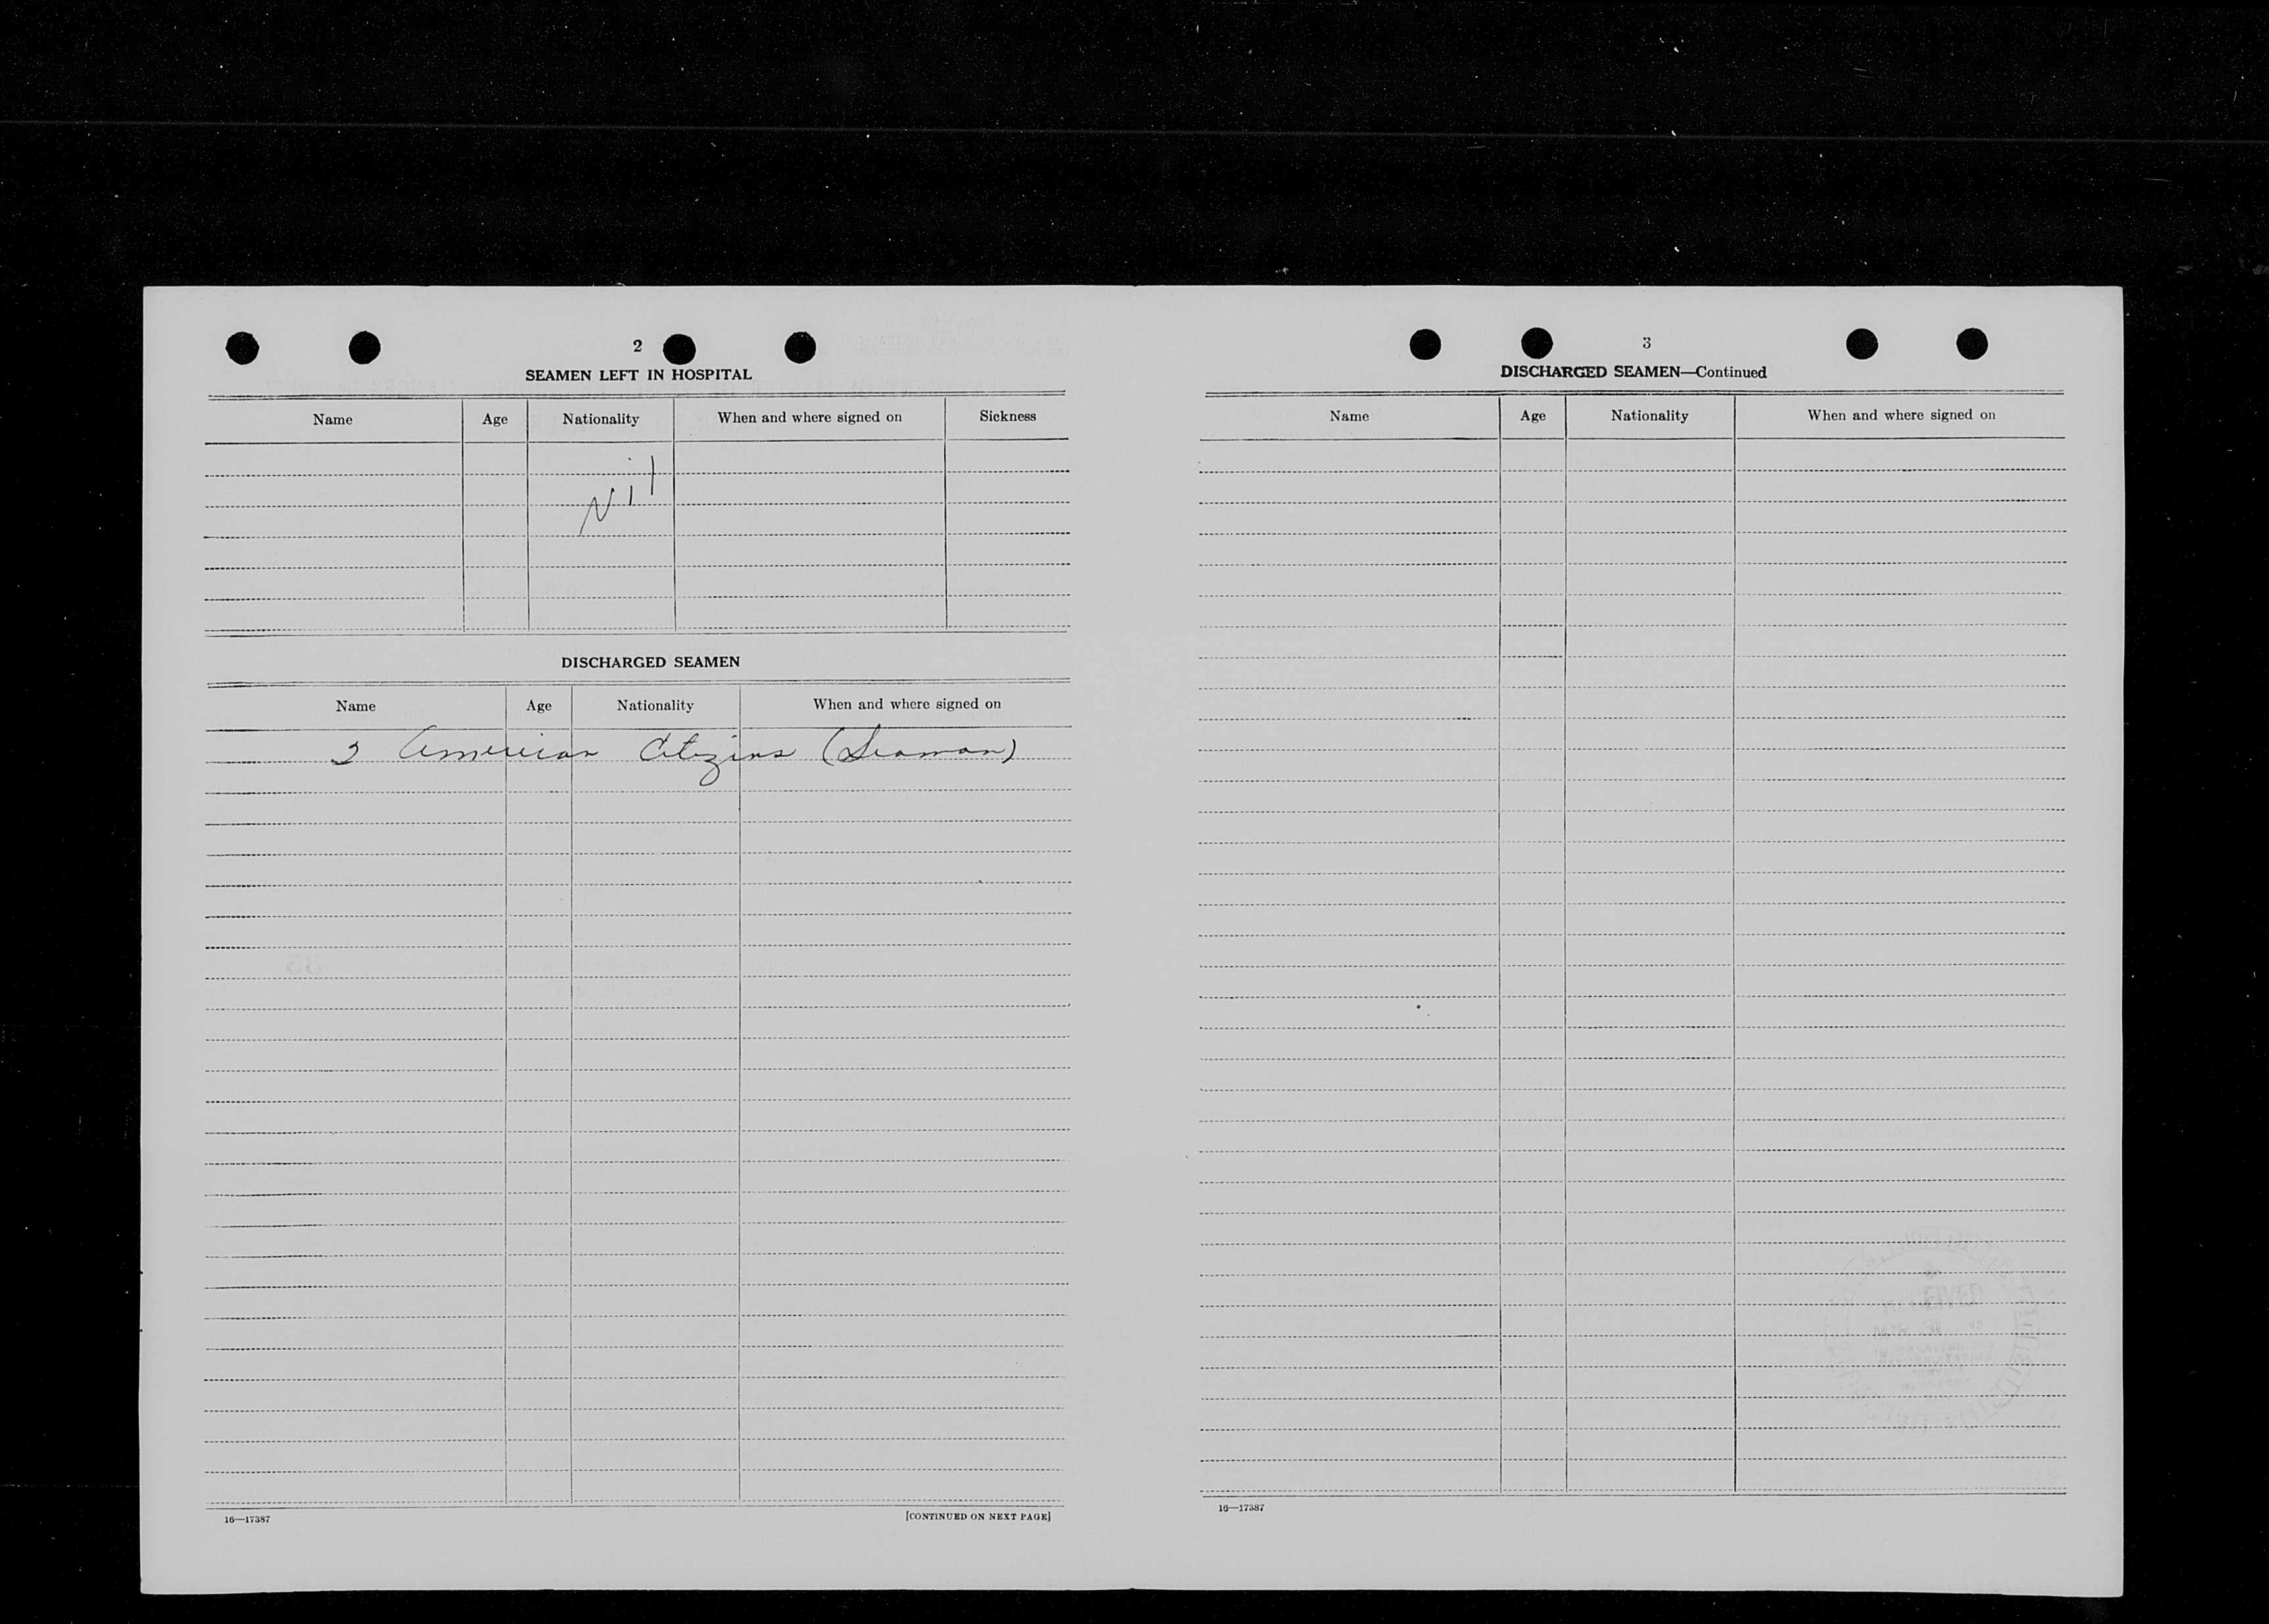 2
SEAMEN LEFT IN HOSPITAL
Name Age Nationality When and where signed on Sickness
Nil
DISCHARGED SEAMEN
Name Age Nationality When and where signed on
2 American Citizins (Seaman)
16—17387 [CONTINUED ON NEXT PAGE]
3
DISCHARGED SEAMEN—Continued
Name Age Nationality When and where signed on
16—17387